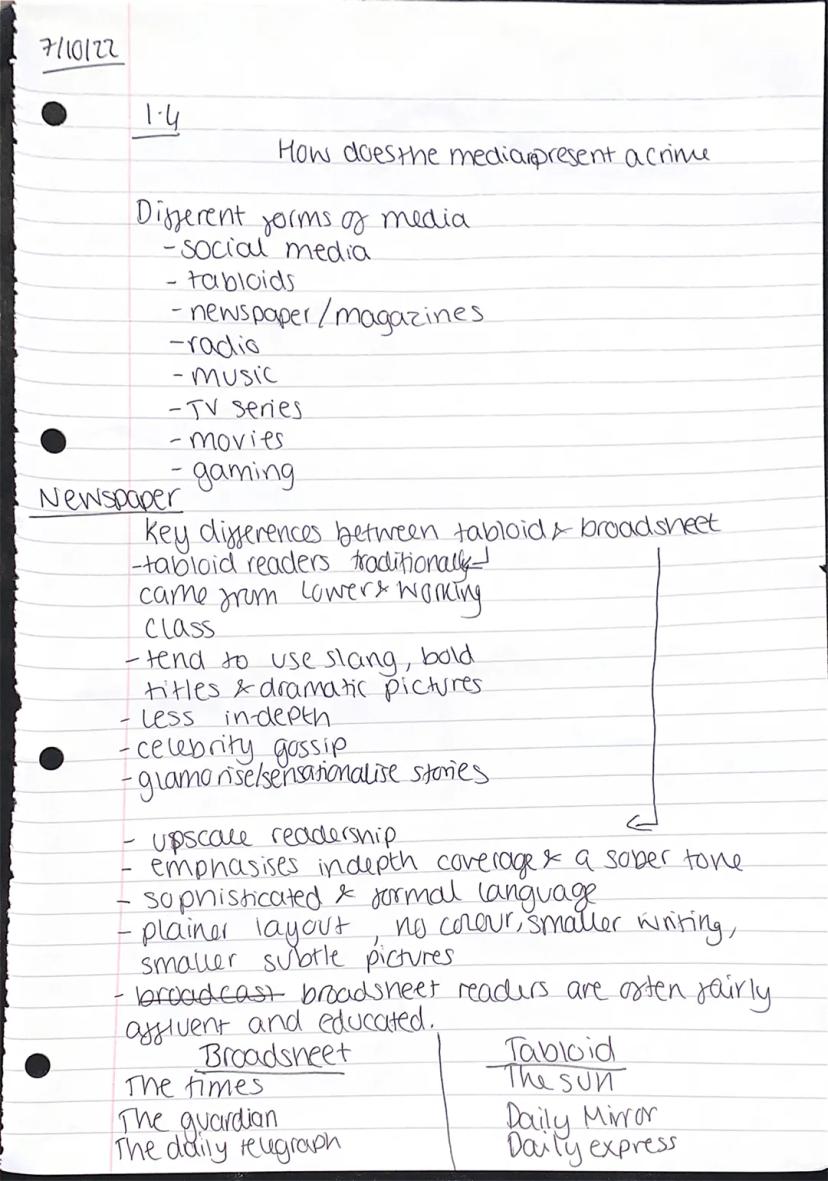 7/10/22
1.4
How does the media present a crime
Different forms of media
- social media
- tabloids
- newspaper/magazines
- radio
- music
- TV series
- movies
- gaming
Newspaper
Key differences between tabloid & broadsheet
- tabloid readers traditionally
came from lower & working
class
- tend to use slang, bold
titles & dramatic pictures
- less in-depth
- celebrity gossip
- glamorise/sensationalise stories
- upscale readership
- emphasises indepth coverage & a sober tone
- sophisticated & formal language
- plainer layout, no colour, smaller writing,
smaller subtle pictures
- broadcast broadsheet readers are often fairly
affluent and educated.
Broadsheet
The times
The guardian
The daily telegraph
Tabloid
The sun
Daily Mirror
Daily express